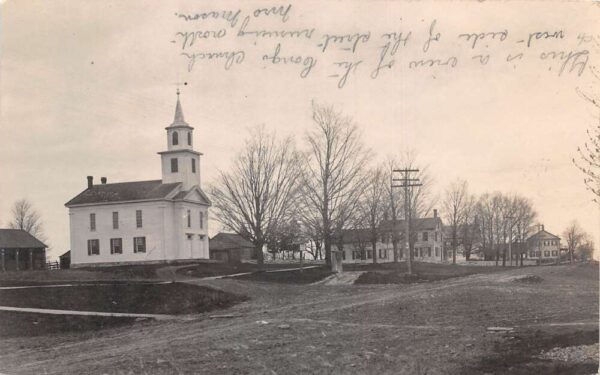 This is a view of the Cong. Church
on west side of the street running north
Mrs Mason.